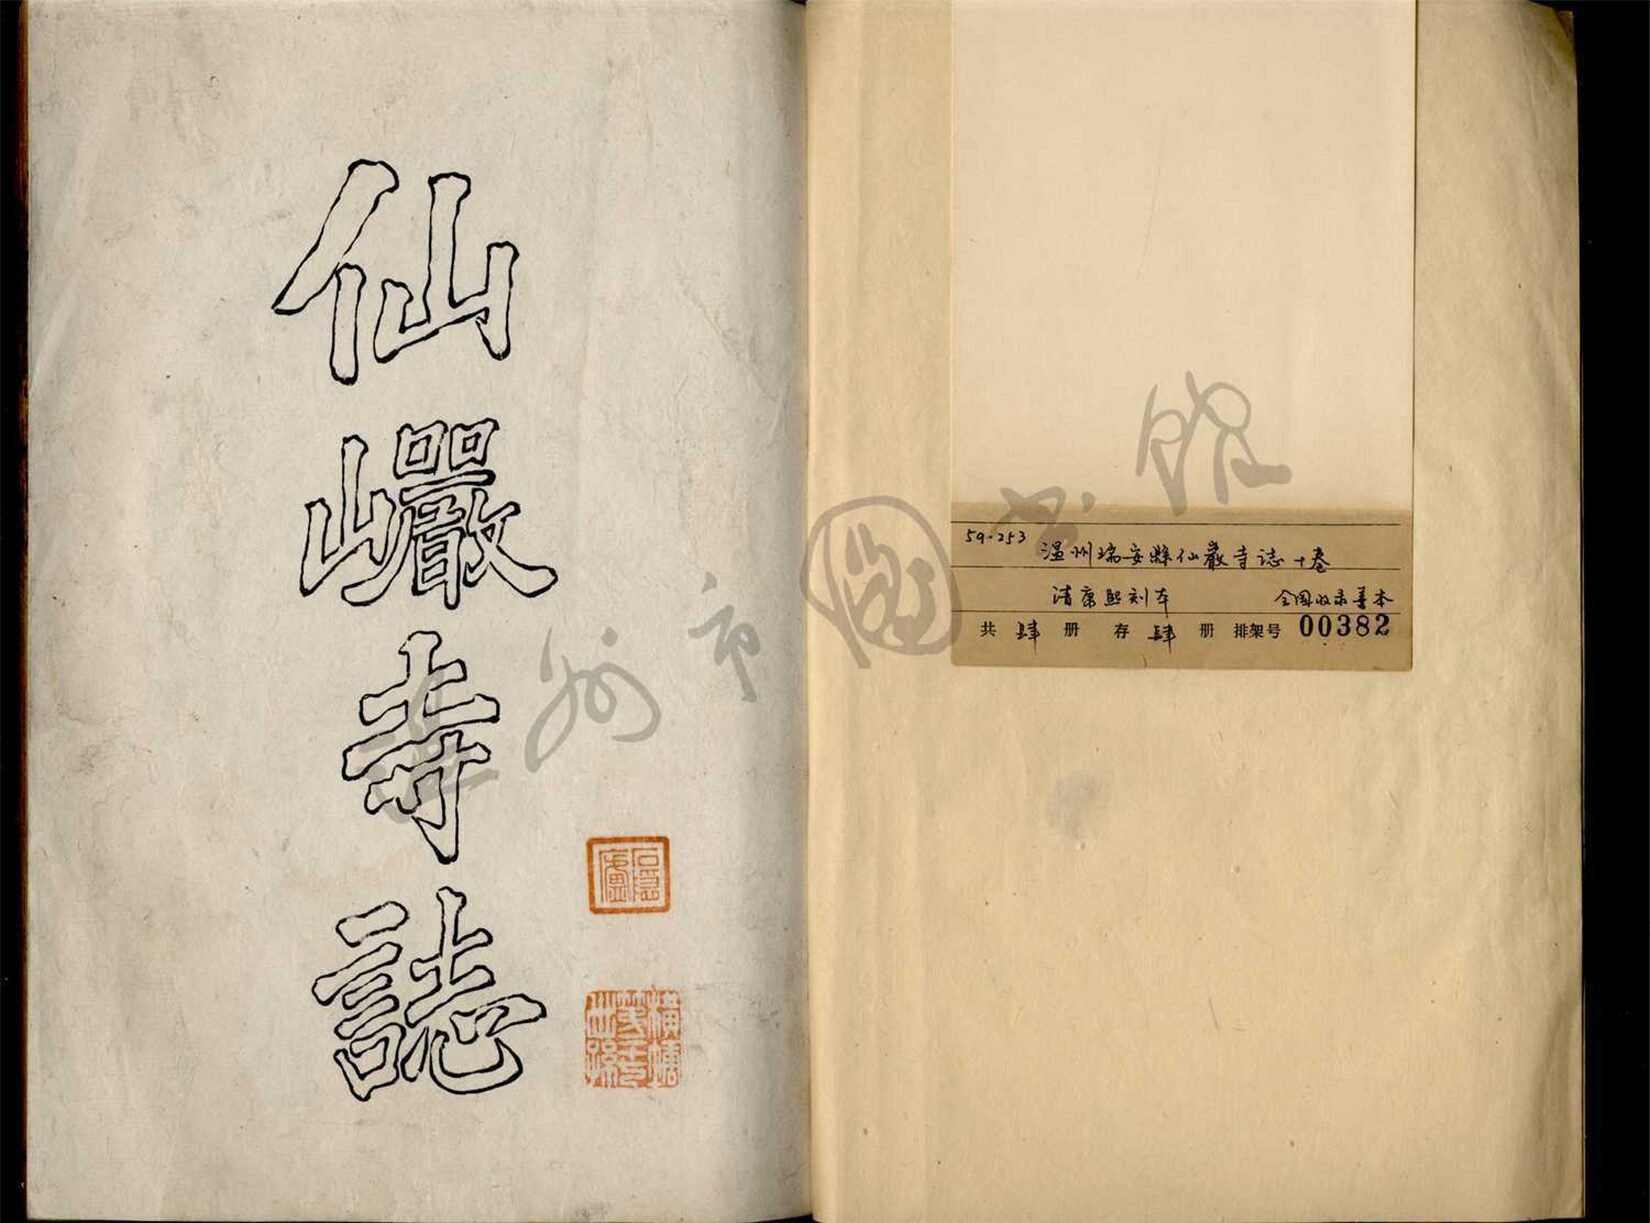 仙巖寺誌
59.253
温州瑞安縣仙巖寺誌十卷
清康熙刻本 全国收录善本
共 肆 册 存 肆 册 排架号 00382
温州市圖书馆